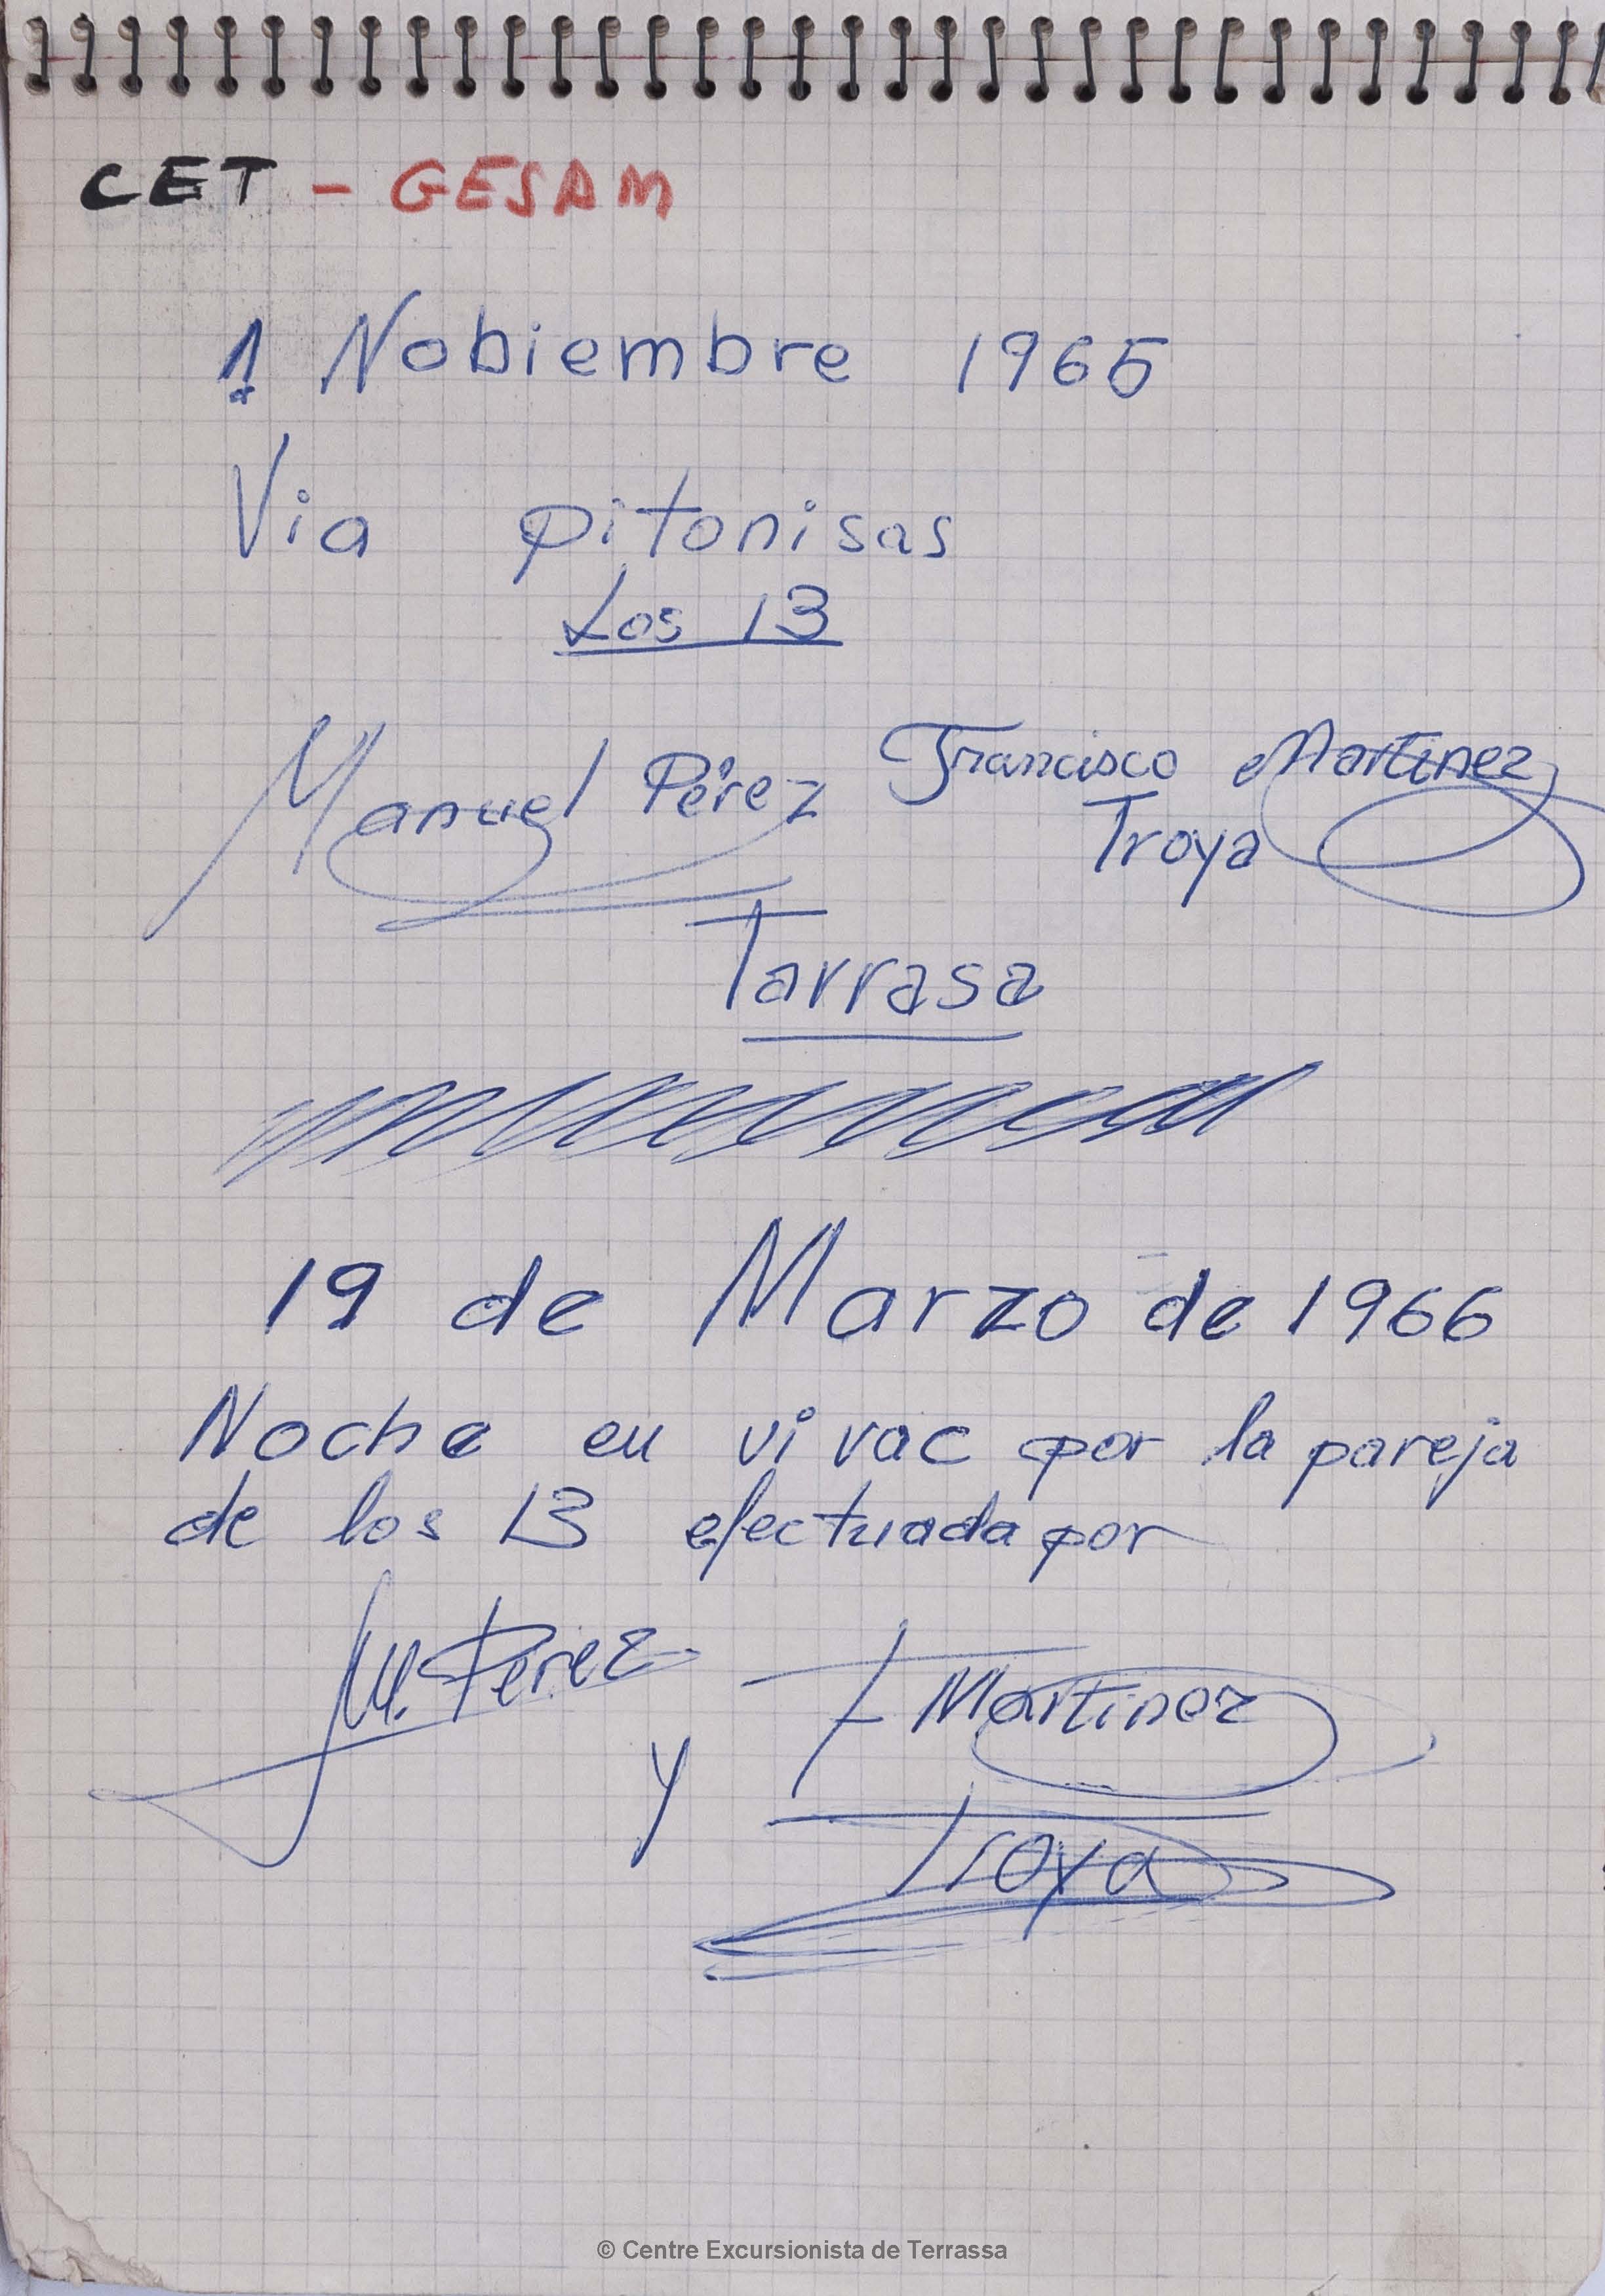 CET - GESAM
1 Nobiembre 1965
Via pitonisas
Los 13
Manuel Pérez Francisco Martinez
Troya
Tarrasa
19 de Marzo de 1966
Noche en vivac por la pareja
de los 13 efectuada por
M. Perez
y F Martinez
Troya
© Centre Excursionista de Terrassa